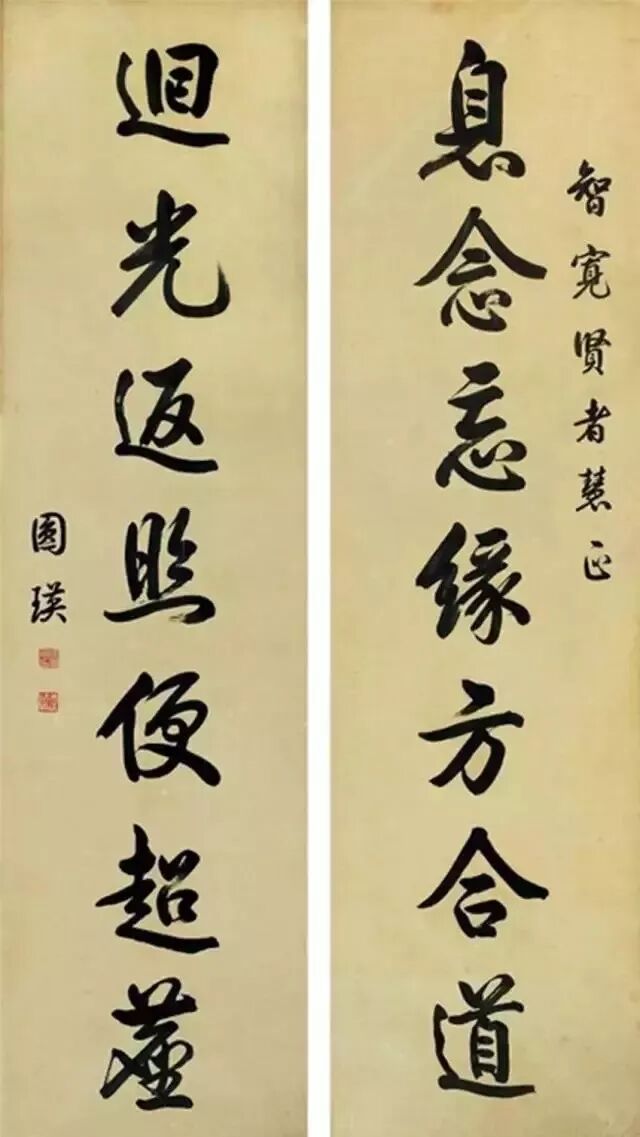 智寬賢者慧正
息念忘緣方合道
迴光返照便超塵
圓瑛